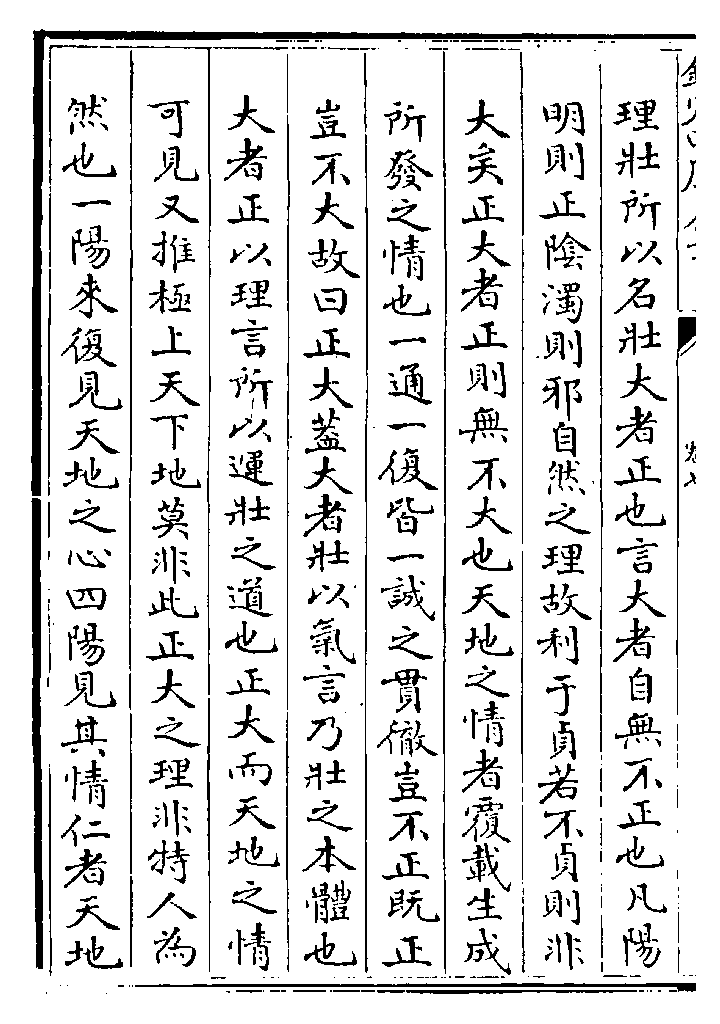 理壯所以名壯大者正也言大者自無不正也凡陽
明則正陰濁則邪自然之理故利于貞若不貞則非
大矣正大者正則無不大也天地之情者覆載生成
所發之情也一通一復皆一誠之貫徹豈不正既正
豈不大故曰正大蓋大者壯以氣言乃壯之本體也
大者正以理言所以運壯之道也正大而天地之情
可見又推極上天下地莫非此正大之理非特人為
然也一陽來復見天地之心四陽見其情仁者天地